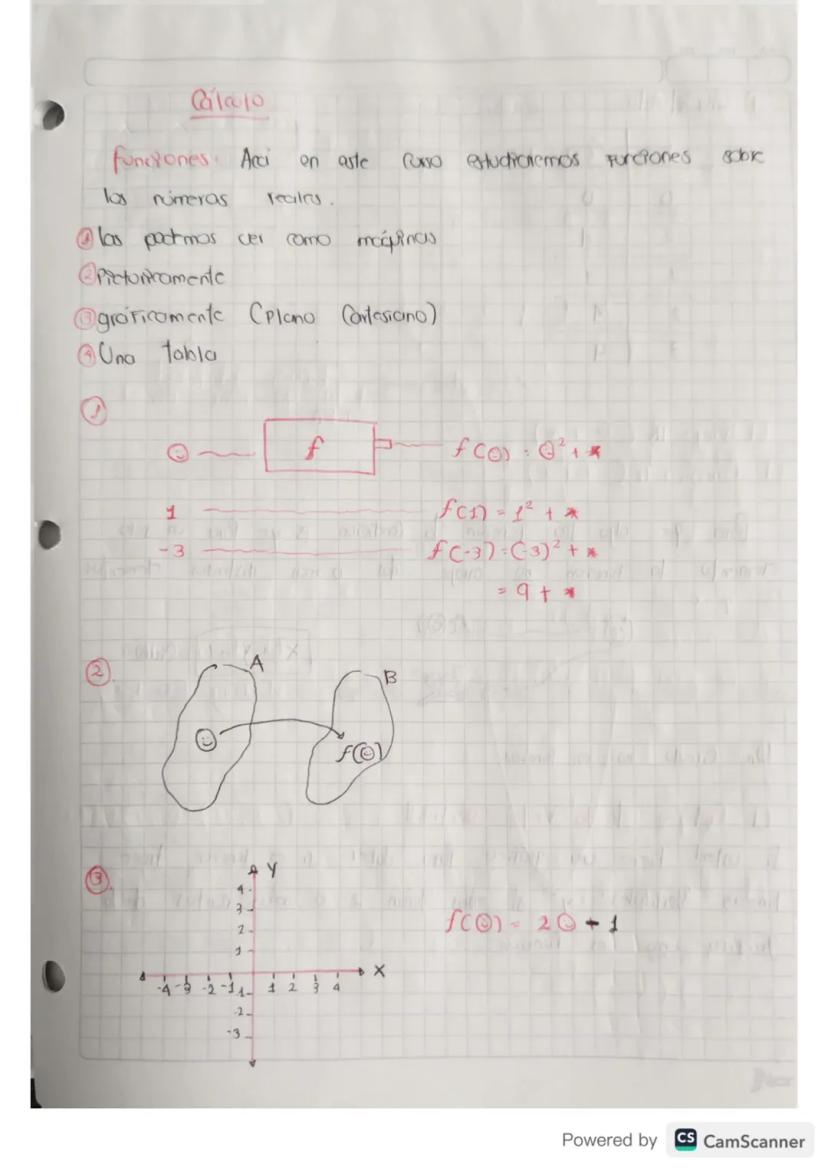 Cálculo
funciones: Acá en este curso estudiaremos funciones sobre
los números reales.
① las podmos ver como máquinas
② Pictoricamente
③ gráficamente (Plano Cartesiano)
④ Una tabla
①
☺ f f(☺) = ☺² + *
1 f(1) = 1² + *
-3 f(-3) = (-3)² + *
= 9 + *
②. A B
☺ f(☺)
③. Y
4
3
2
1
-4 -3 -2 -1 1 2 3 4 X
-1
-2
-3
f(☺) = 2☺ + 1
Powered by CS CamScanner